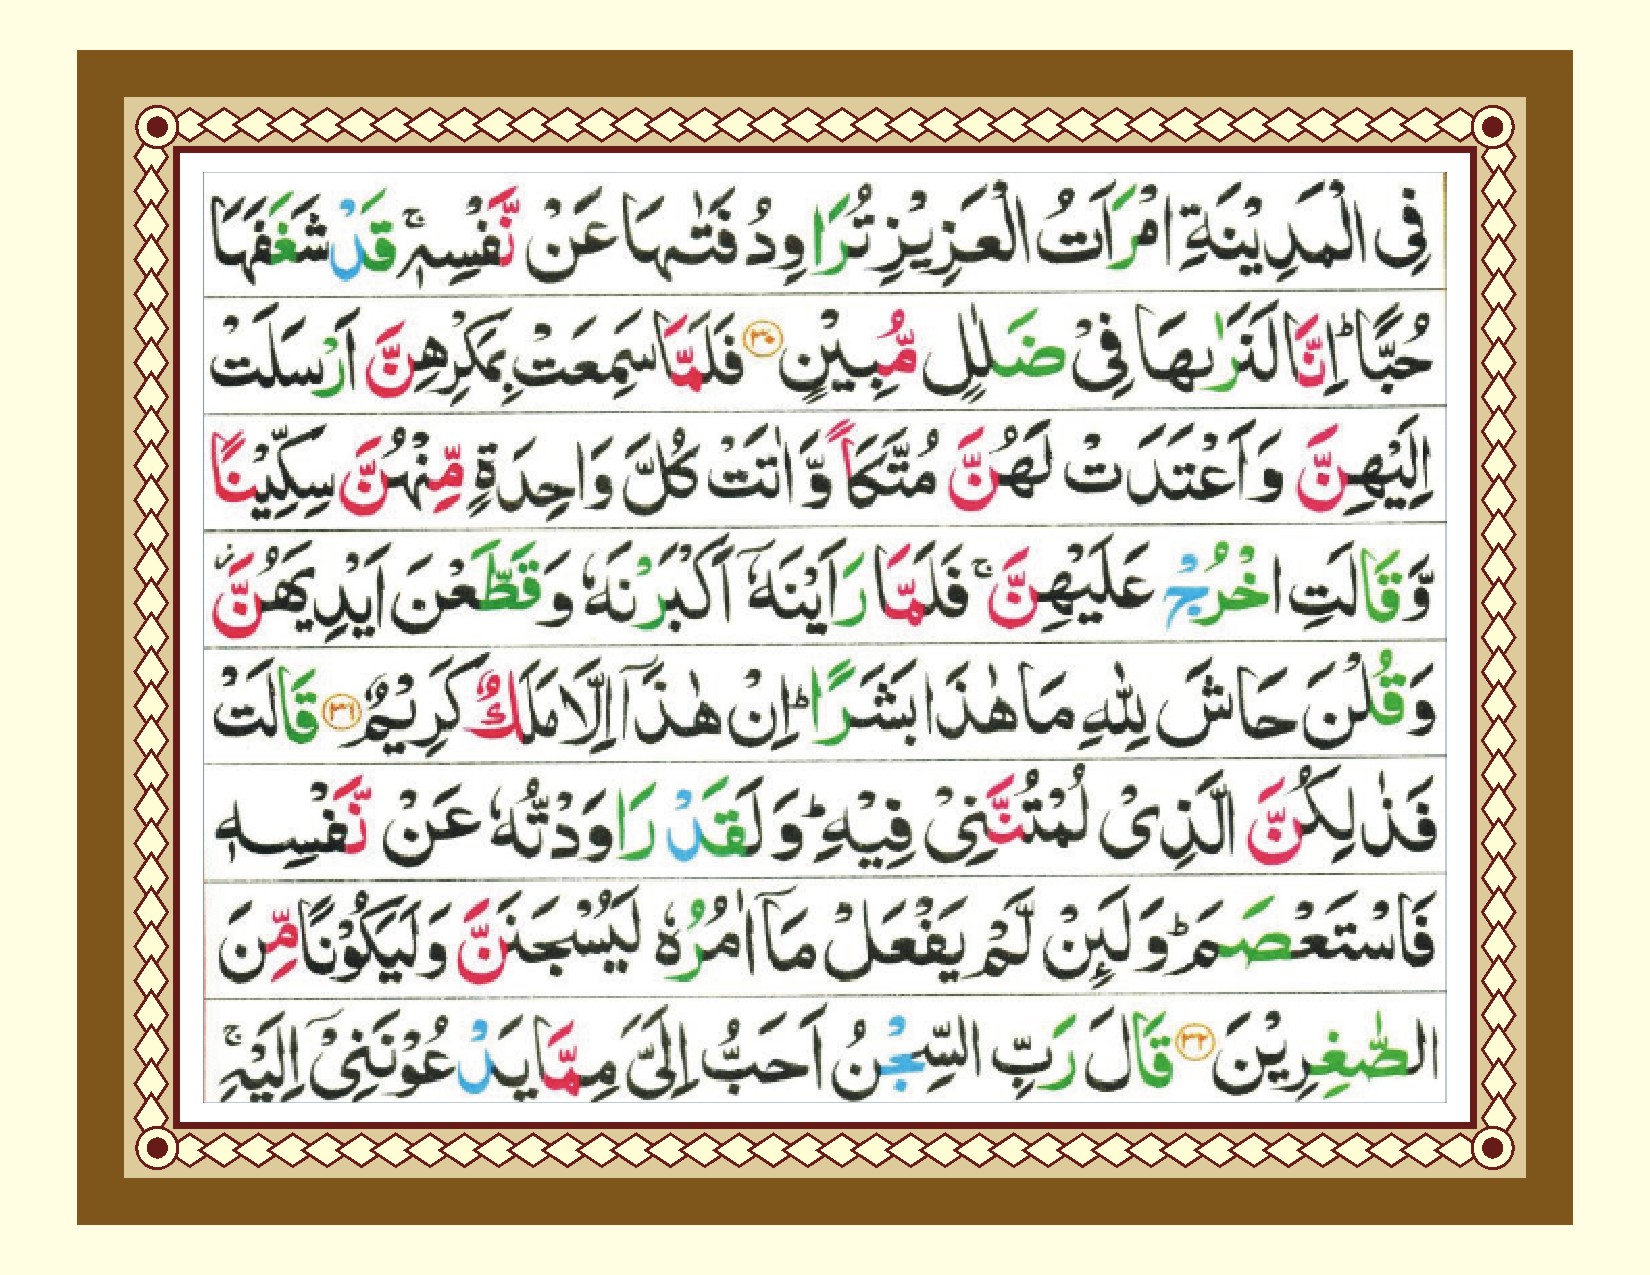 فِی الْمَدِیْنَةِ امْرَاَتُ الْعَزِیْزِ تُرَاوِدُ فَتٰىهَا عَنْ نَّفْسِهٖ ۚ قَدْ شَغَفَهَا
حُبًّا ؕ اِنَّا لَنَرٰىهَا فِیْ ضَلٰلٍ مُّبِیْنٍ ۝۳۰ فَلَمَّا سَمِعَتْ بِمَكْرِهِنَّ اَرْسَلَتْ
اِلَیْهِنَّ وَاَعْتَدَتْ لَهُنَّ مُتَّكَاً وَّاٰتَتْ كُلَّ وَاحِدَةٍ مِّنْهُنَّ سِكِّیْنًا
وَّقَالَتِ اخْرُجْ عَلَیْهِنَّ ۚ فَلَمَّا رَاَیْنَهٗۤ اَكْبَرْنَهٗ وَقَطَّعْنَ اَیْدِیَهُنَّ ؗ
وَقُلْنَ حَاشَ لِلّٰهِ مَا هٰذَا بَشَرًا ؕ اِنْ هٰذَاۤ اِلَّا مَلَكٌ كَرِیْمٌ ۝۳۱ قَالَتْ
فَذٰلِكُنَّ الَّذِیْ لُمْتُنَّنِیْ فِیْهِ ؕ وَلَقَدْ رَاوَدْتُّهٗ عَنْ نَّفْسِهٖ
فَاسْتَعْصَمَ ؕ وَلَىِٕنْ لَّمْ یَفْعَلْ مَاۤ اٰمُرُهٗ لَیُسْجَنَنَّ وَلَیَكُوْنًا مِّنَ
الصّٰغِرِیْنَ ۝۳۲ قَالَ رَبِّ السِّجْنُ اَحَبُّ اِلَیَّ مِمَّا یَدْعُوْنَنِیْۤ اِلَیْهِ ۚ